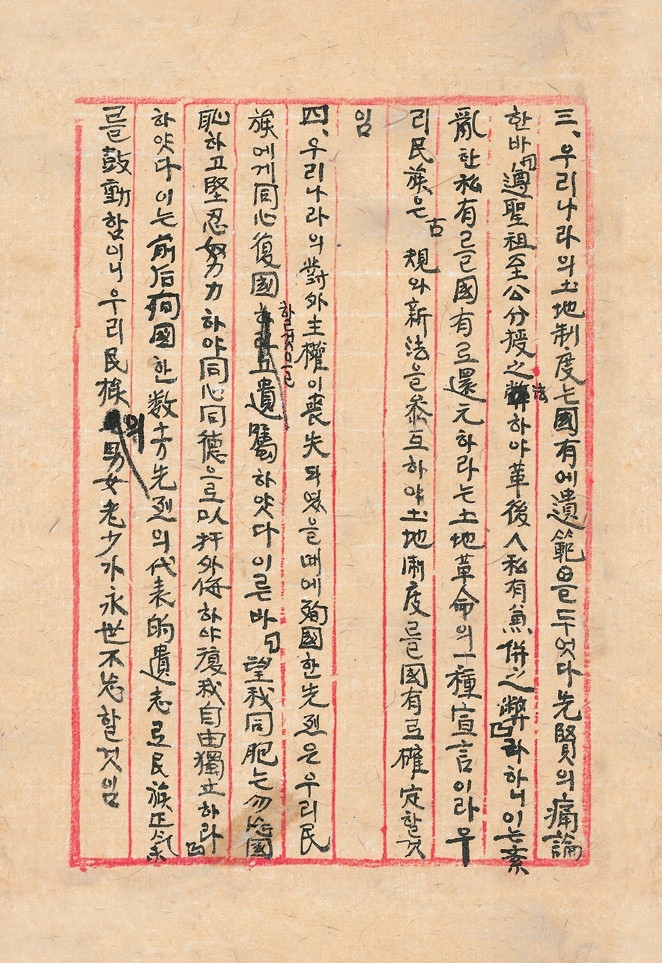 三、우리나라의土地制度는國有에遺範을두엇다先賢의痛論
한바「遵聖祖至公分授之法하야革後人私有兼併之弊」라하니이는紊
亂한私有를國有로還元하라는土地革命의一種宣言이라우
리民族은古規와新法을參互하야土地制度를國有로確定할것
임
四、우리나라의對外主權이喪失되엿을때에殉國한先烈은우리民
族에게同心復國할것으로遺囑하얏다이른바「望我同胞는勿忘國
恥하고堅忍努力하야同心同德으로以扞外侮하야復我自由獨立하라」
하얏다이는前后殉國한數十万先烈의代表的遺志로民族正氣
를鼓動함이니우리民族의男女老少가永世不忘할것임